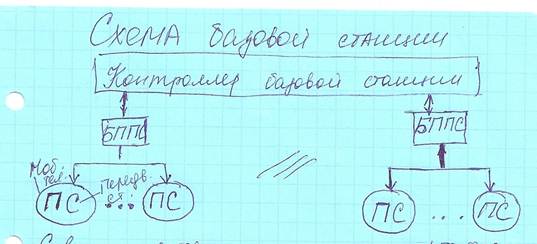 Схема базовой станции
Контроллер базовой станции
БППС БППС
Моб. тел. Передв.
ПС ... ПС ПС ... ПС